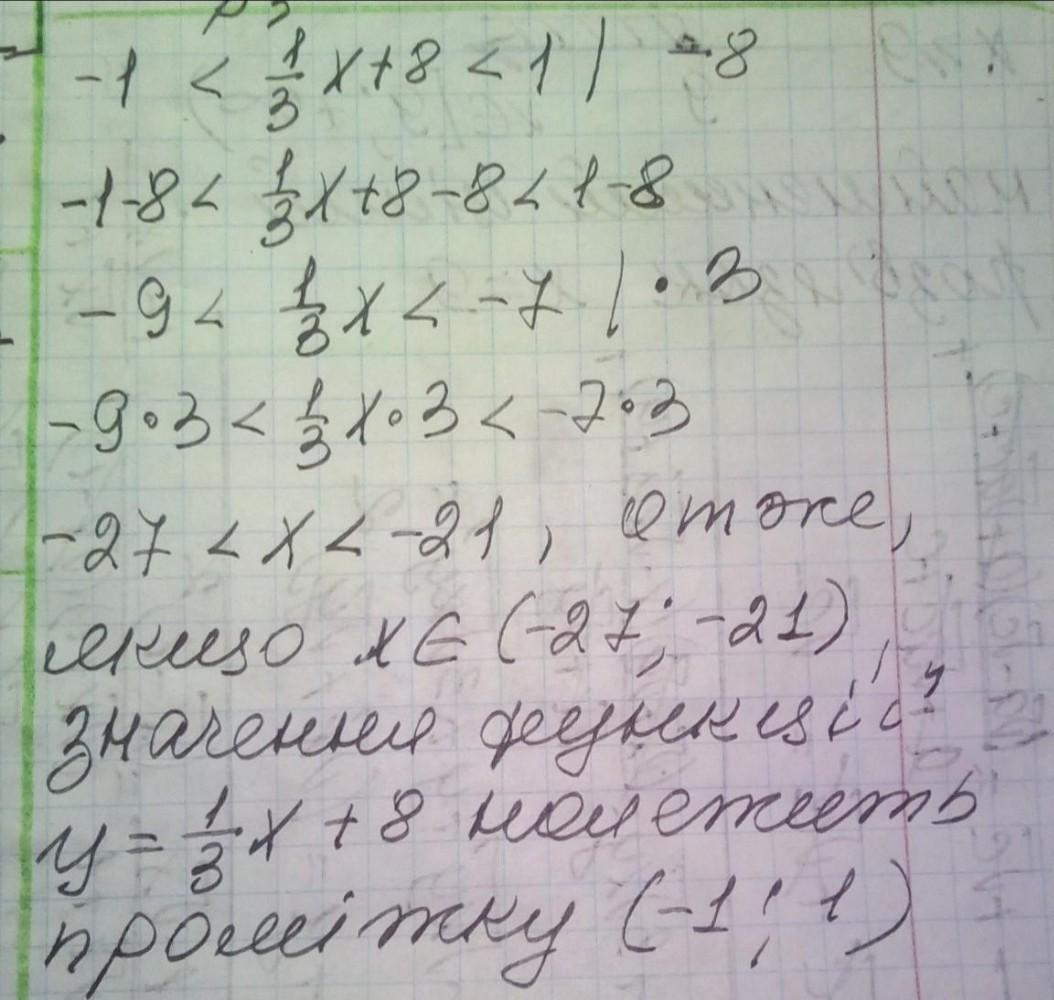 -1 < 1/3 x + 8 < 1 | -8
-1-8 < 1/3 x + 8 - 8 < 1-8
-9 < 1/3 x < -7 | · 3
-9·3 < 1/3 x · 3 < -7·3
-27 < x < -21, отже,
якщо x ∈ (-27; -21),
значення функції
y = 1/3 x + 8 належить
проміжку (-1; 1)